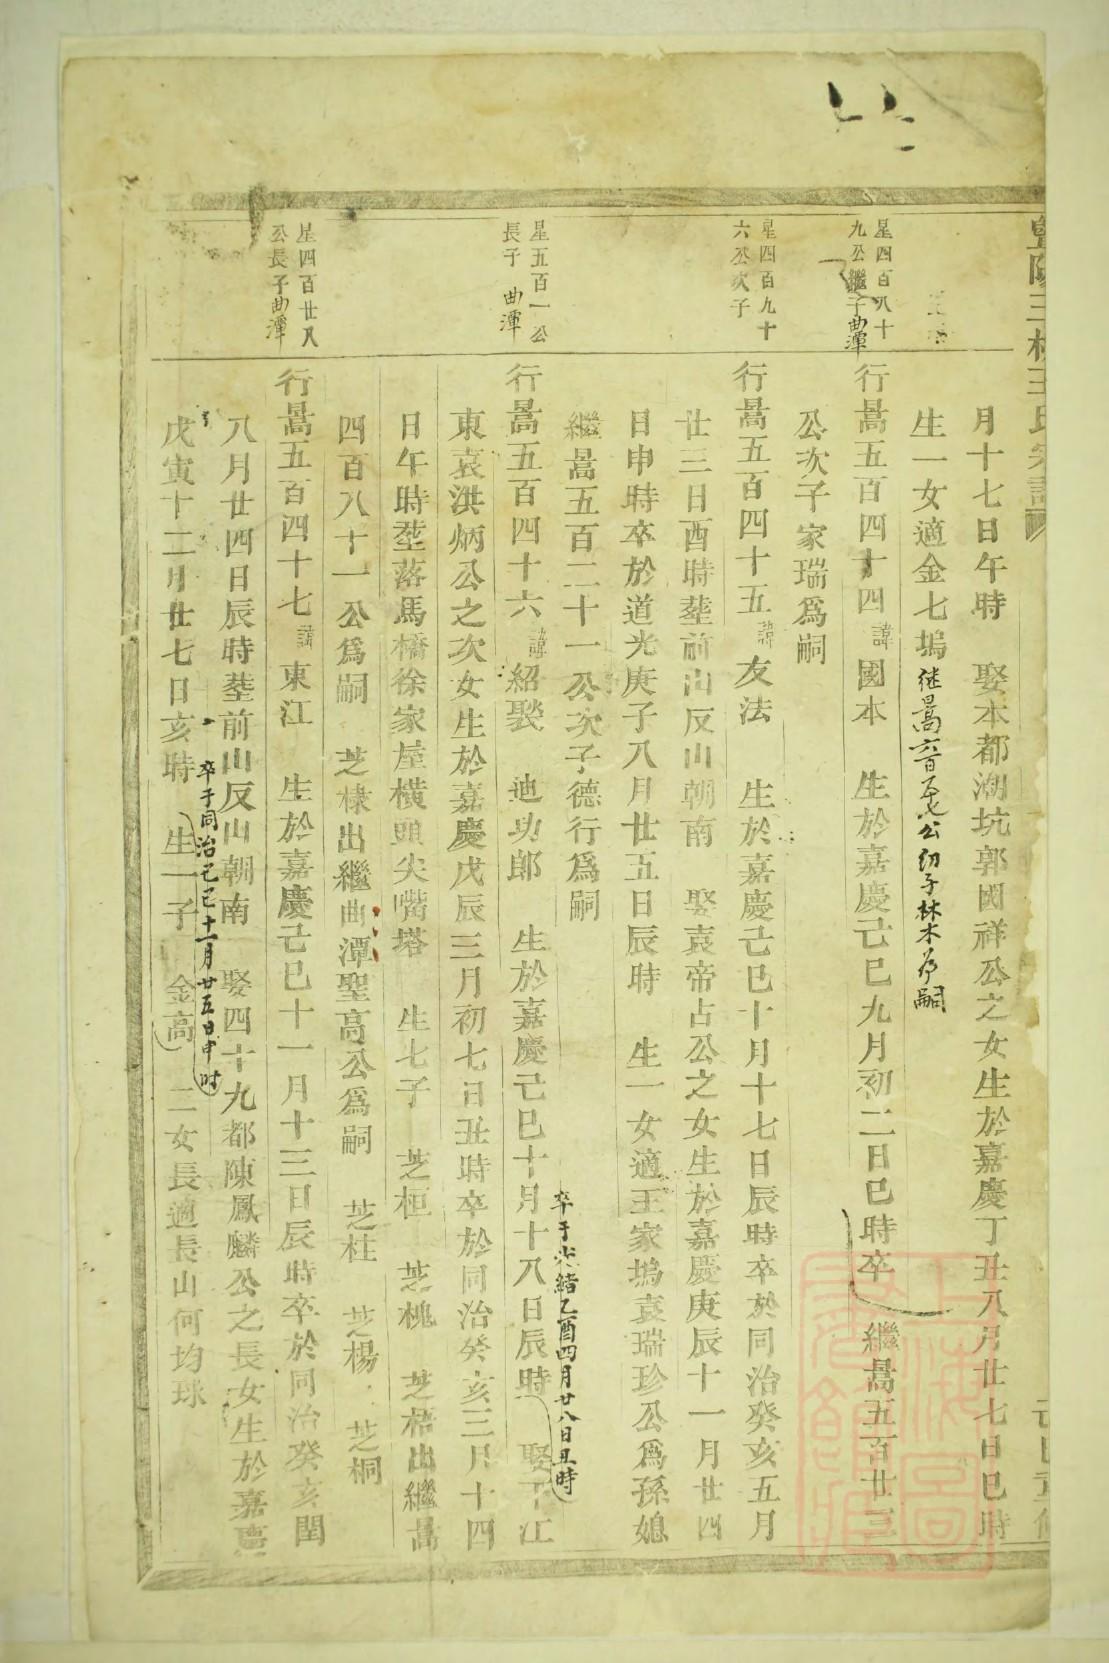 月十七日午時　娶本都湖坑郭國祥公之女生於嘉慶丁丑八月廿七日巳時
生一女適金七塢
幼子林木為嗣
星四百八十
九公繼子曲潭
行暠五百四十四諱國本　生於嘉慶己巳九月初二日巳時卒　繼暠五百廿三
公次子家瑞爲嗣
星四百九十
六公次子
行暠五百四十五諱友法　生於嘉慶己巳十月十七日辰時卒於同治癸亥五月
廿三日酉時塟前山反山朝南　娶袁帝占公之女生於嘉慶庚辰十一月廿四
日申時卒於道光庚子八月廿五日辰時　生一女適王家塢袁瑞珍公爲孫媳
繼暠五百二十一公次子德行爲嗣
星五百一公
長子　曲潭
行暠五百四十六諱紹褧　迪功郎　生於嘉慶己巳十月十八日辰時　娶下江
卒于光緒乙酉四月廿八日丑時
東袁洪炳公之次女生於嘉慶戊辰三月初七日丑時卒於同治癸亥三月十四
日午時塟落馬橋徐家屋橫頭尖嘴塔　生七子　芝桓　芝槐　芝梧出繼暠
四百八十一公爲嗣　芝棣出繼曲潭聖高公爲嗣　芝桂　芝楊　芝桐
星四百廿八
公長子曲潭
行暠五百四十七諱東江　生於嘉慶己巳十一月十三日辰時卒於同治癸亥閏
八月廿四日辰時塟前山反山朝南　娶四十九都陳鳳麟公之長女生於嘉慶
卒于同治己巳十一月廿五日申时
戊寅十二月廿七日亥時　生一子　金高　二女長適長山何均球